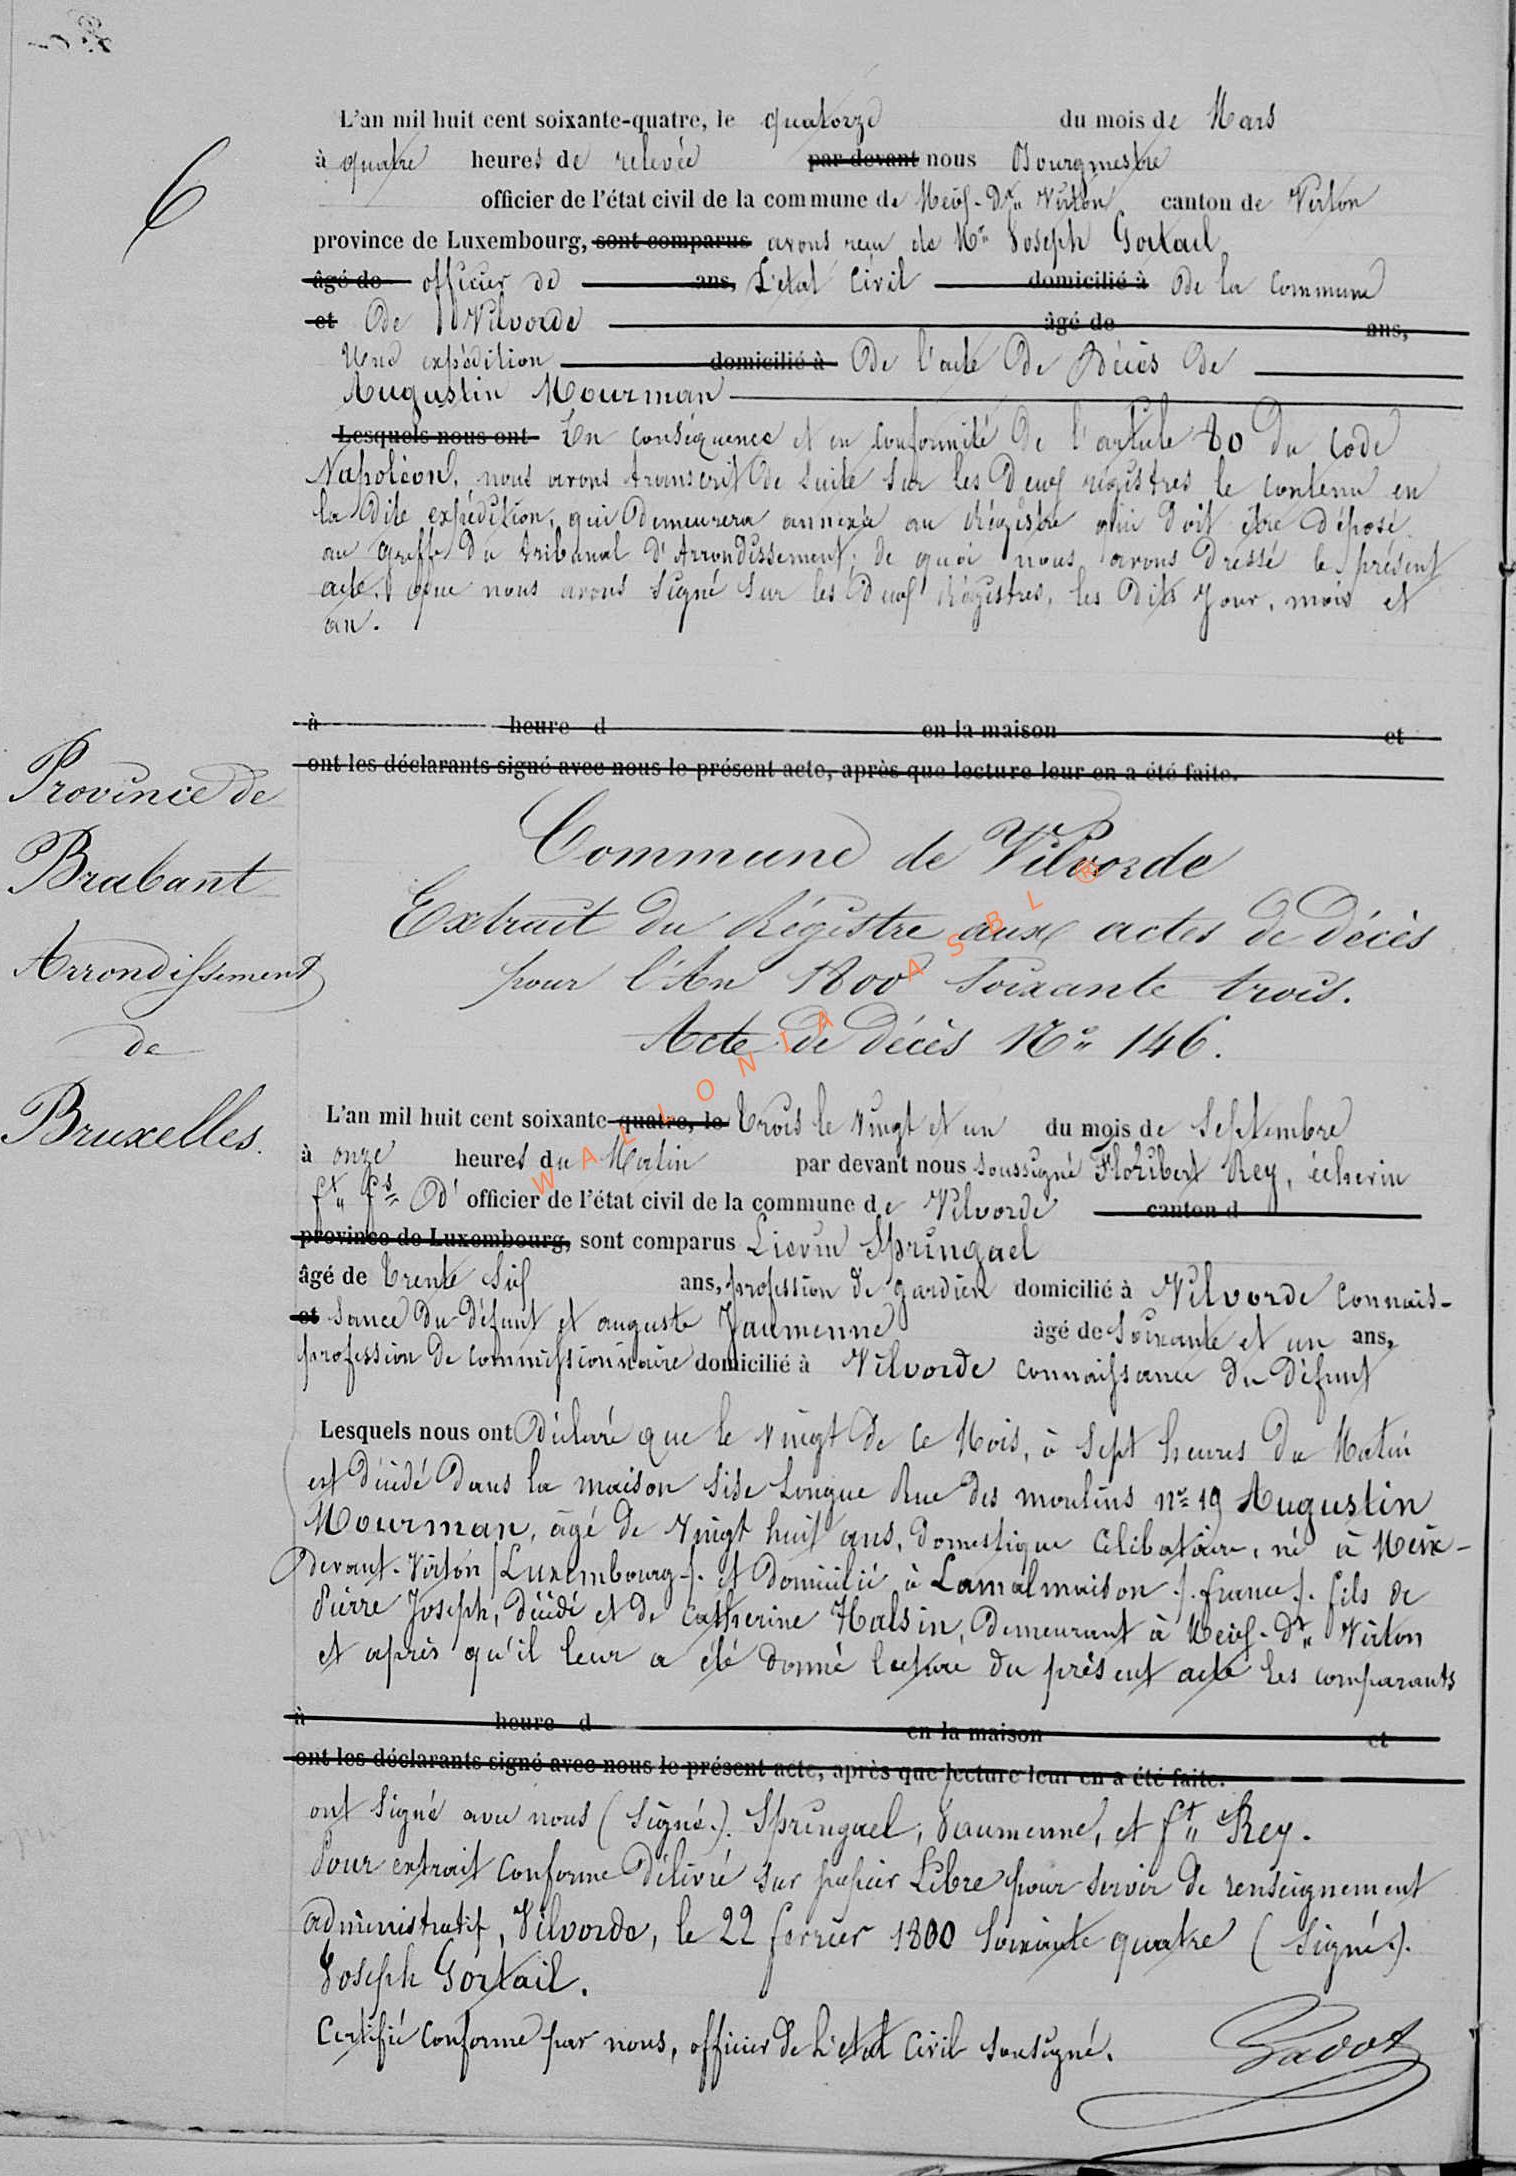 6
L'an mil huit cent soixante-quatre, le quatorze du mois de Mars
à quatre heures de relevée par devant nous Bourgmestre
officier de l'état civil de la commune de Meix-Dt. Virton canton de Virton
province de Luxembourg, sont comparus avons reçu de Mr Joseph Gortail
âgé de officier de ans, L'état Civil domicilié à de la Commune
et de Vilvorde âgé de ans,
Une expédition domicilié à De l'acte De Décès De
Augustin Mourman
Lesquels nous ont En conséquence et en conformité de l'article 80 du code
Napoléon, nous avons transcrit de suite sur les Deux registres le contenu en
la dite expédition, qui Demeurera annexée au Régistre qui doit être déposé
au Greffe du tribunal d'Arrondissement; de quoi nous avons dressé le présent
acte, que nous avons signé sur les deux Régistres, les dits Jour, mois et
an.
à heure d en la maison et
ont les déclarants signé avec nous le présent acte, après que lecture leur en a été faite.
Province de
Brabant
Arrondissement
de
Bruxelles.
Commune de Vilvorde
Extrait du Régistre aux actes de décès
pour l'An 1800 Soixante trois.
Acte de décès No 146.
L'an mil huit cent soixante-quatre, le trois le Vingt et un du mois de Septembre
à onze heures du Matin par devant nous soussigné Floribert Rey, échevin
ft. fs. d' officier de l'état civil de la commune de Vilvorde canton d
province de Luxembourg, sont comparus Lievin Springael
âgé de trente six ans, profession de gardien domicilié à Vilvorde connais-
et sance du défunt et auguste Jaumenne âgé de Soixante et un ans,
profession de commissionnaire domicilié à Vilvorde connaissance du défunt
Lesquels nous ont Déclaré que le Vingt de ce Mois, à sept heures du Matin
est décédé dans la maison sise Longue Rue des moulins no 19 Augustin
Mourman, âgé de Vingt huit ans, domestique célibataire, né à Meix-
devant-Virton (Luxembourg). et domicilié à Lamalmaison (france). fils de
Pierre Joseph, décédé et de Catherine Halsin, demeurant à Meix-Dt. Virton
et après qu'il leur a été donné lecture du présent acte les comparants
à heure d en la maison et
ont les déclarants signé avec nous le présent acte, après que lecture leur en a été faite.
ont signé avec nous (Signé). Springael, Jaumenne, et ft. Rey.
Pour extrait Conforme Délivré sur papier Libre pour servir de renseignement
administratif, Vilvorde, le 22 fevrier 1800 Soixante quatre (Signé).
Joseph Gortail.
Certifié Conforme par nous, officier de l'état Civil sousigné.
Gadot
WALLONIA ASBL ®